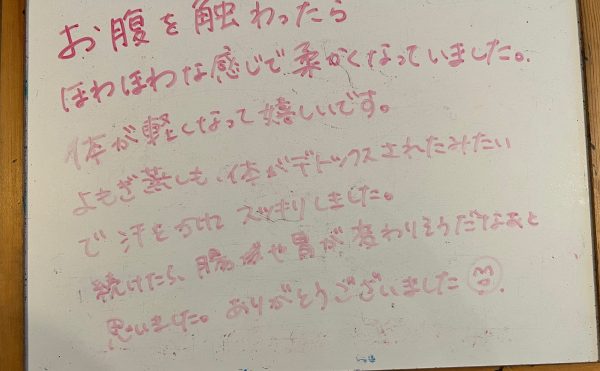 お腹を触わったら
ほわほわな感じで柔かくなっていました。
体が軽くなって嬉しいです。
よもぎ蒸しも、体がデトックスされたみたい
で 汗を スッキリしました。
続けたら、腸や胃が変わりそうだなぁと
思いました。ありがとうございました